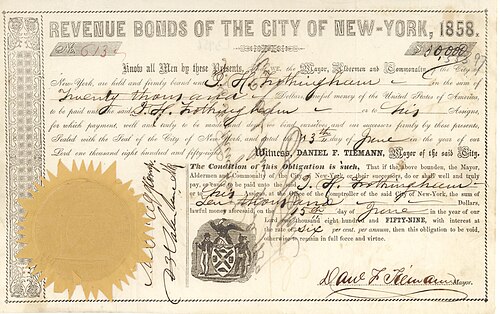 REVENUE BONDS OF THE CITY OF NEW-YORK, 1858.
No. 613 $10,000
Know all Men by these Presents, that We, the Mayor, Aldermen and Commonalty of the City of
New-York, are held and firmly bound unto I. H. Frothingham in the sum of
Twenty thousand Dollars, lawful money of the United States of America,
to be paid unto the said I. H. Frothingham or to his Assigns,
for which payment, well and truly to be made, we bind ourselves, and our successors firmly by these presents,
Sealed with the Seal of the City of New-York, and dated the 13th day of June in the year of our
Lord one thousand eight hundred and fifty
Witness, DANIEL F. TIEMANN, Mayor of the said City.
The Condition of this Obligation is such, That if the above bounden, the Mayor,
Aldermen and Commonalty of the City of New-York, or their successors, do or shall well and truly
pay, or cause to be paid unto the said I. H. Frothingham
or to his Assigns, at the Office of the Comptroller of the said City, the sum of
Ten thousand Dollars,
lawful money aforesaid, on the 15th day of June in the year of our
Lord one thousand eight hundred and FIFTY-NINE, with interest at
the rate of Six per cent. per annum, then this obligation to be void,
otherwise to remain in full force and virtue.
Danl F. Tiemann Mayor.